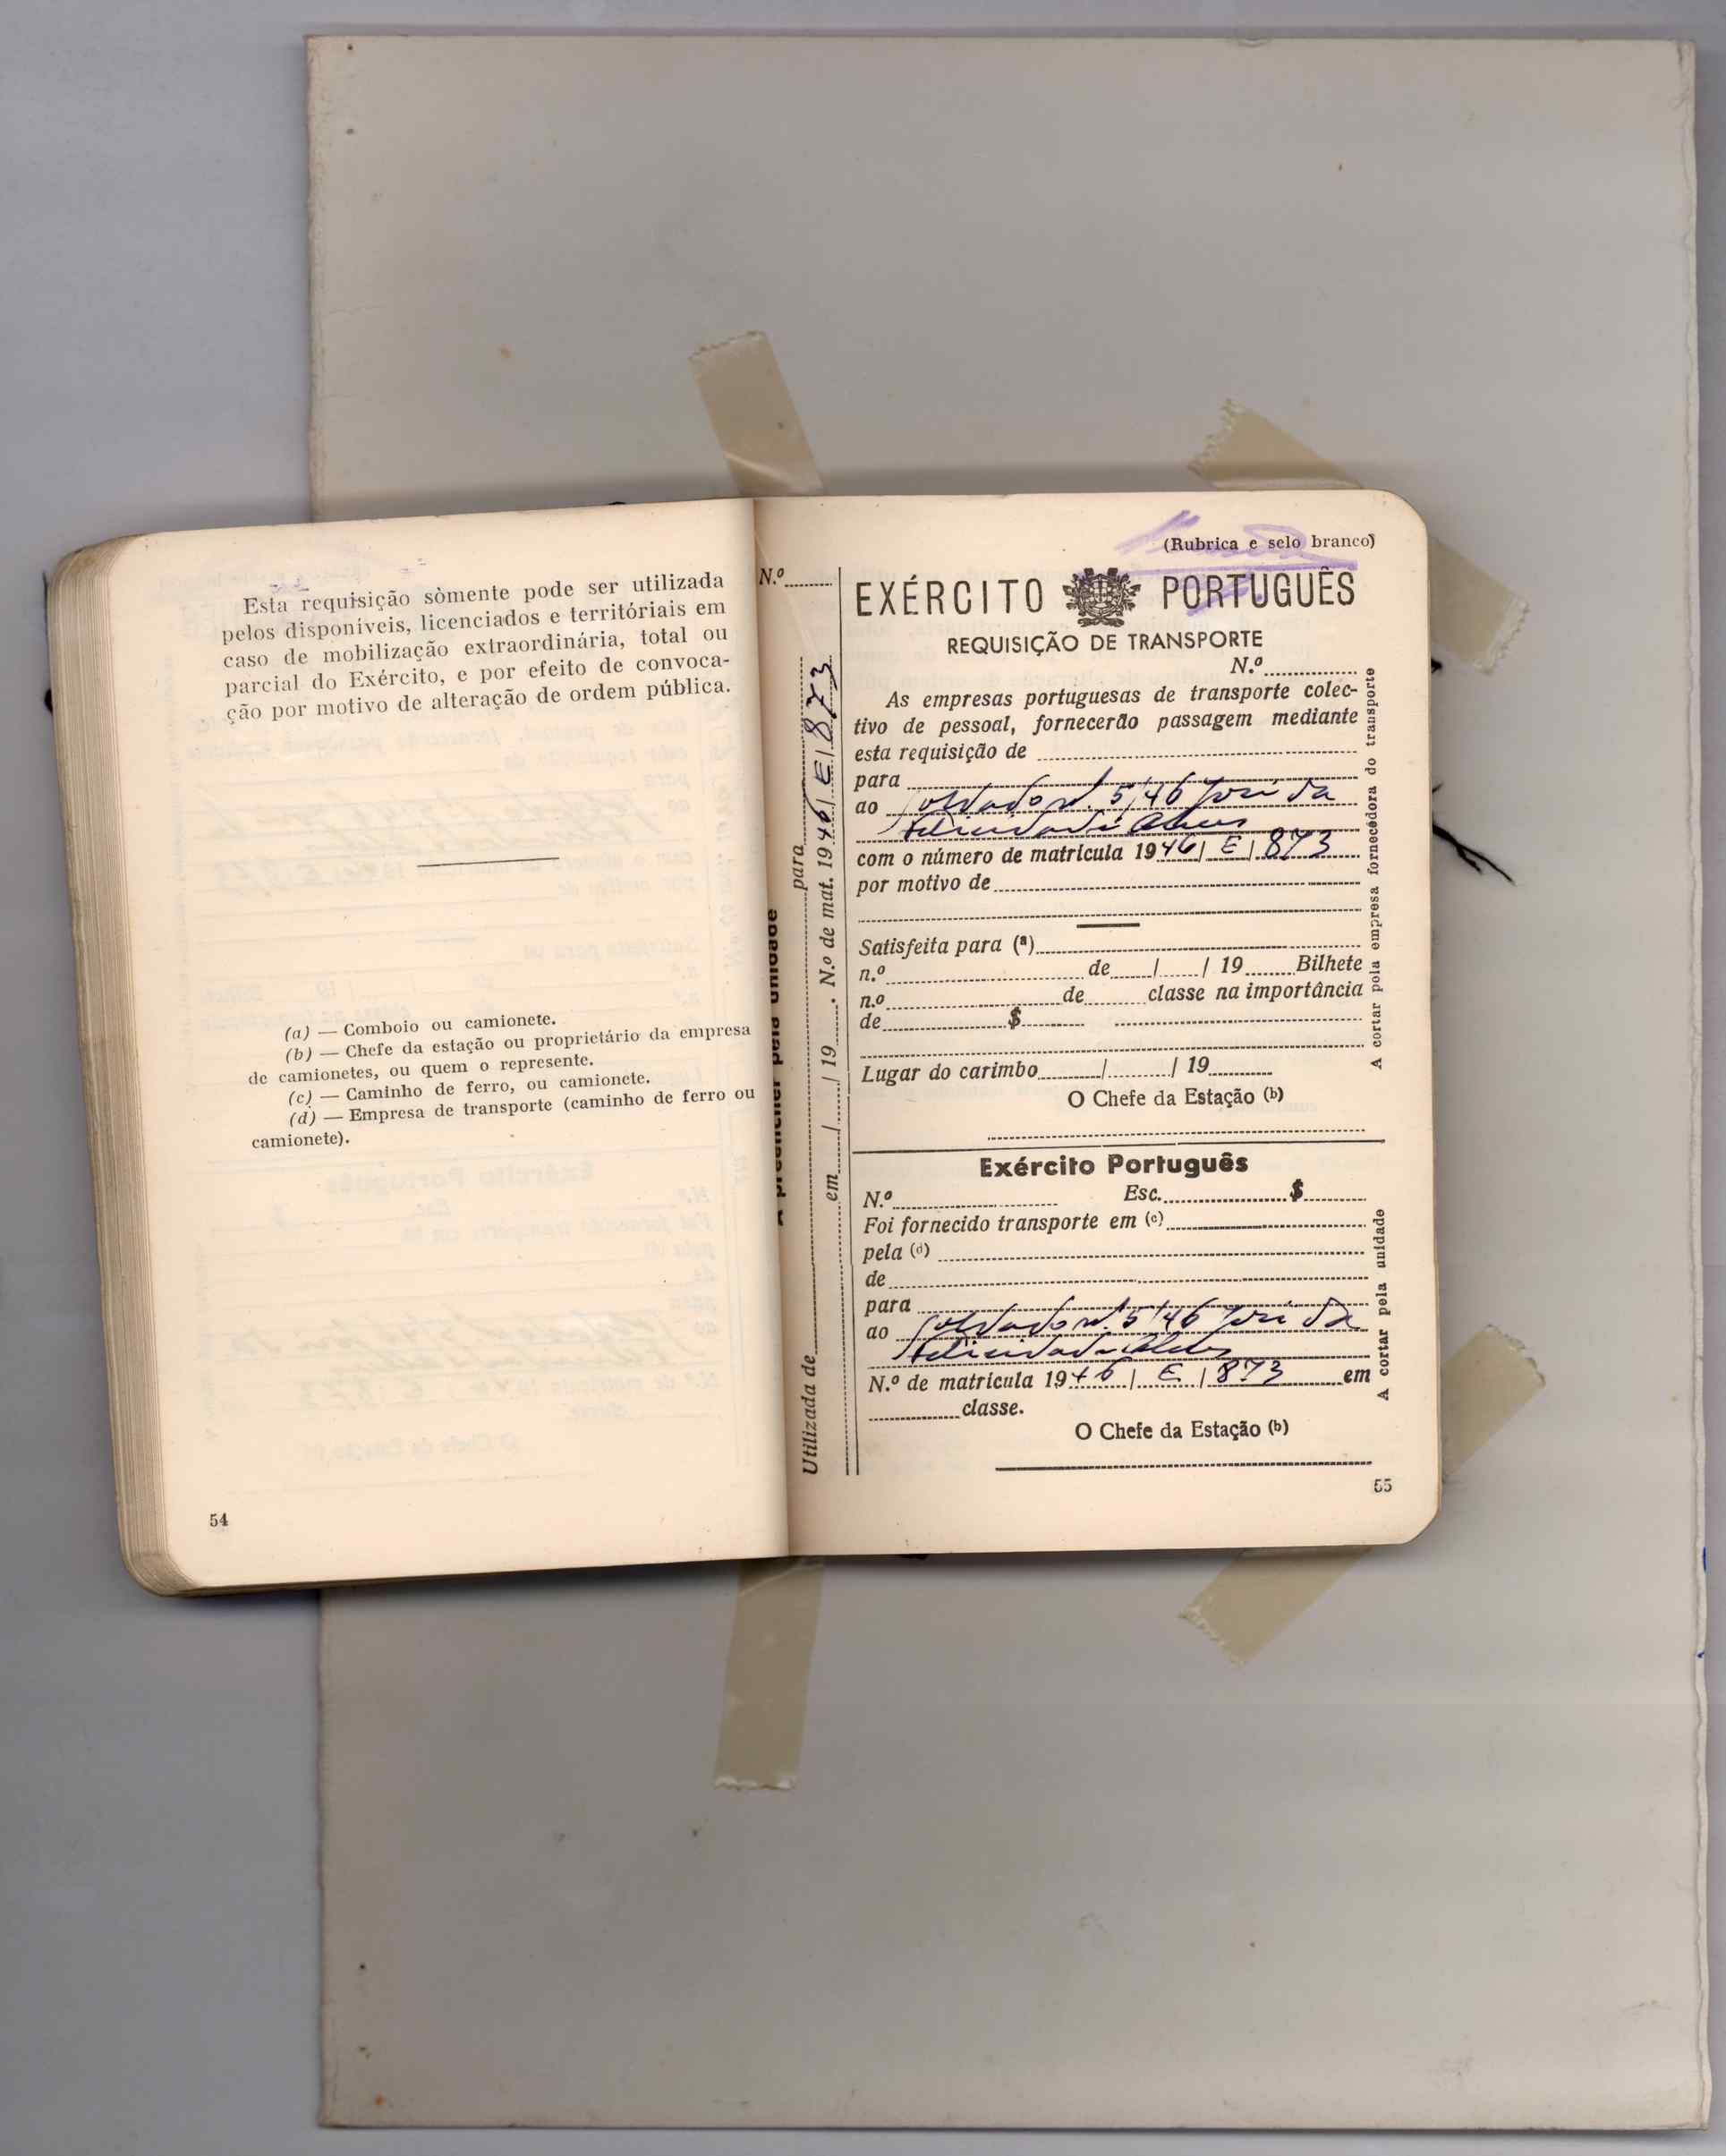 Esta requisição sòmente pode ser utilizada
pelos disponíveis, licenciados e territóriais em
caso de mobilização extraordinária, total ou
parcial do Exército, e por efeito de convoca-
ção por motivo de alteração de ordem pública.
(a) — Comboio ou camionete.
(b) — Chefe da estação ou proprietário da empresa
de camionetes, ou quem o represente.
(c) — Caminho de ferro, ou camionete.
(d) — Empresa de transporte (caminho de ferro ou
camionete).
54
N.º
A preencher pela unidade
Utilizada de para
em / / 19 . N.º de mat. 19 46 / E / 873
(Rubrica e selo branco)
EXÉRCITO PORTUGUÊS
REQUISIÇÃO DE TRANSPORTE
N.º
As empresas portuguesas de transporte colec-
tivo de pessoal, fornecerão passagem mediante
esta requisição de
para
ao Soldado n.º 5/46 José da
Felicidade Alves
com o número de matrícula 19 46 / E / 873
por motivo de
Satisfeita para (a)
n.º de / / 19 Bilhete
n.º de classe na importância
de $
Lugar do carimbo / / 19
O Chefe da Estação (b)
A cortar pela empresa fornecedora do transporte
Exército Português
N.º Esc. $
Foi fornecido transporte em (c)
pela (d)
de
para
ao Soldado n.º 5/46 José da
Felicidade Alves
N.º de matrícula 19 46 / E / 873 em
classe.
O Chefe da Estação (b)
A cortar pela unidade
55